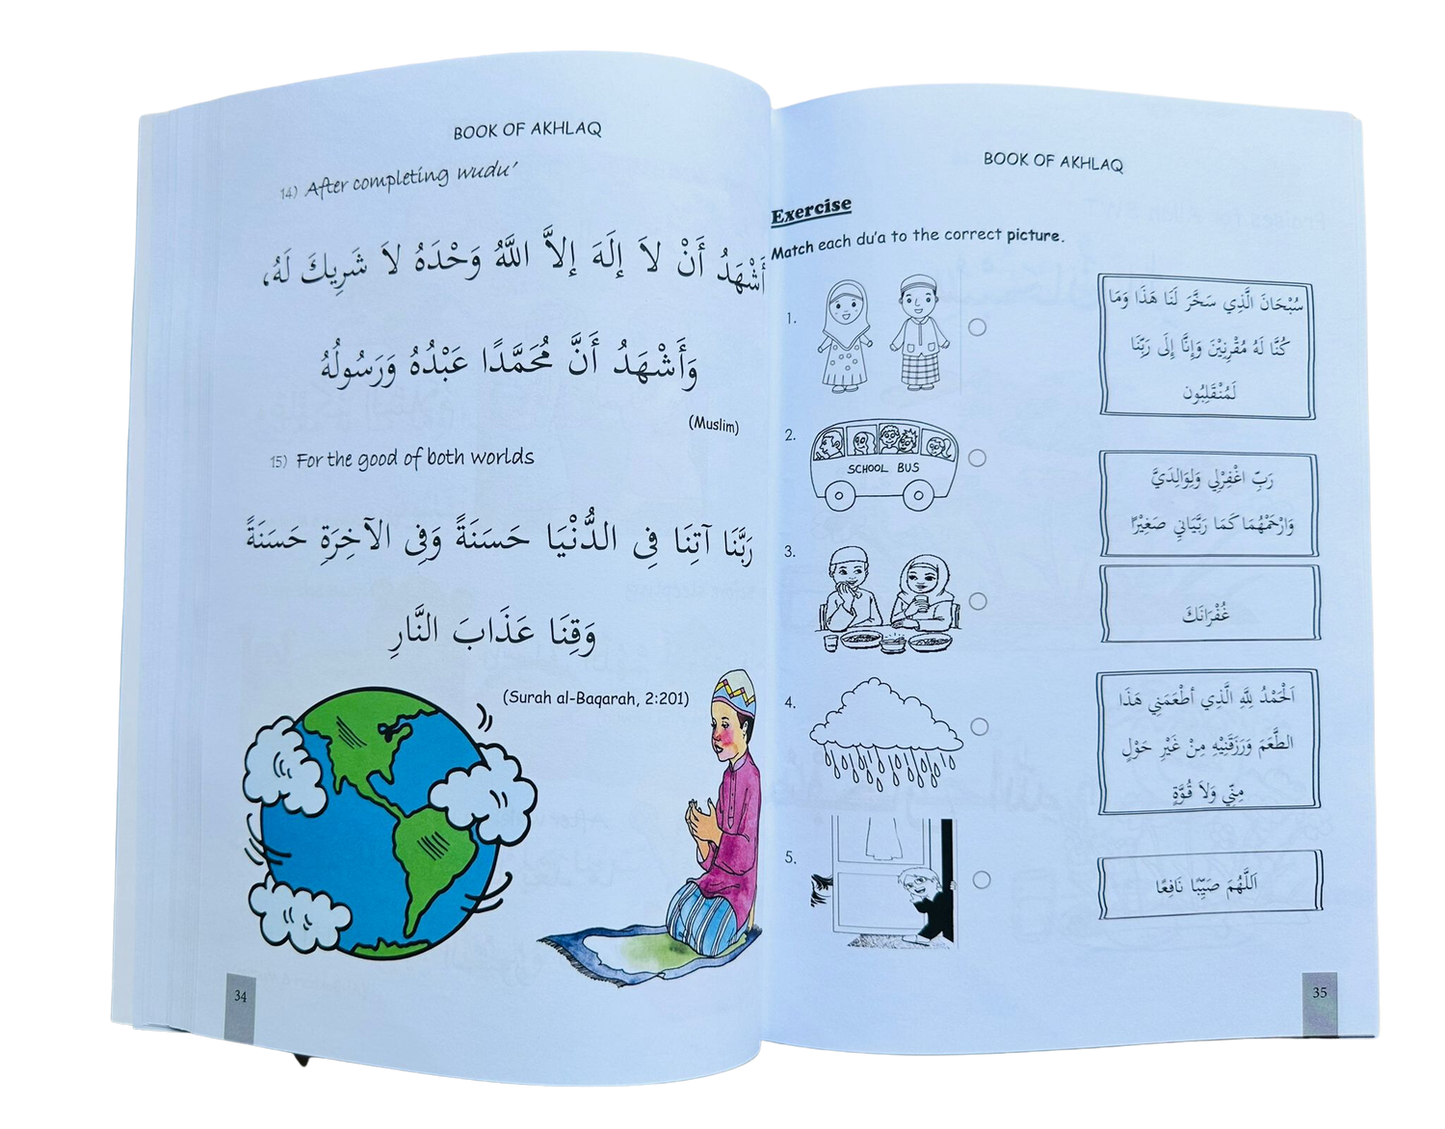 BOOK OF AKHLAQ
14) After completing wudu'
أَشْهَدُ أَنْ لاَ إِلَهَ إِلاَّ اللَّهُ وَحْدَهُ لاَ شَرِيكَ لَهُ،
وَأَشْهَدُ أَنَّ مُحَمَّدًا عَبْدُهُ وَرَسُولُهُ
(Muslim)
15) For the good of both worlds
رَبَّنَا آتِنَا فِي الدُّنْيَا حَسَنَةً وَفِي الآخِرَةِ حَسَنَةً
وَقِنَا عَذَابَ النَّارِ
(Surah al-Baqarah, 2:201)
34
BOOK OF AKHLAQ
Exercise
Match each du'a to the correct picture.
1.
2.
SCHOOL BUS
3.
4.
5.
سُبْحَانَ الَّذِي سَخَّرَ لَنَا هَذَا وَمَا
كُنَّا لَهُ مُقْرِنِيْنَ وَإِنَّا إِلَى رَبِّنَا
لَمُنْقَلِبُون
رَبِّ اغْفِرْلِي وَلِوَالِدَيَّ
وَارْحَمْهُمَا كَمَا رَبَّيَانِي صَغِيْرًا
غُفْرَانَكَ
اَلْحَمْدُ لِلَّهِ الَّذِي أطْعَمَنِي هَذَا
الطَّعَمَ وَرَزَقَنِيْهِ مِنْ غَيْرِ حَوْلٍ
مِنِّي وَلاَ قُوَّةٍ
اَللَّهُمَ صَيِّبًا نَافِعًا
35